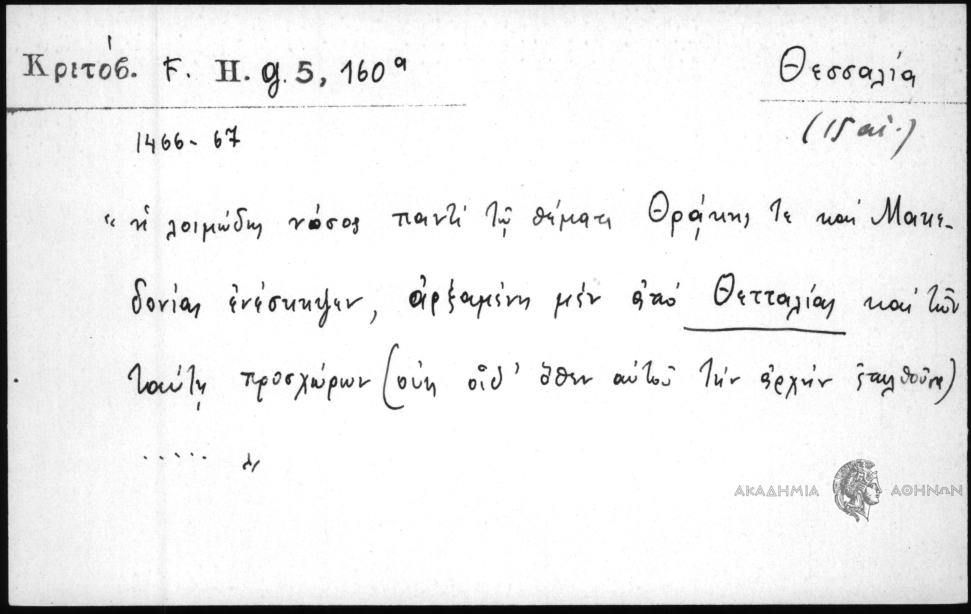 Κριτόβ. F. H. g. 5, 160ᵃ
Θεσσαλία
(15 αἰ.)
1466-67
" ἡ λοιμώδης νόσος παντὶ τῷ θέματι Θρᾴκης τε καὶ Μακε-
δονίας ἐνέσκηψεν, ἀρξαμένη μὲν ἀπὸ Θετταλίας καὶ τῶν
ταύτῃ προσχώρων (οὐκ οἶδ' ὅθεν αὐτοῦ τὴν ἀρχὴν ἐπελθοῦσα)
..... "
ΑΚΑΔΗΜΙΑ ΑΘΗΝΩΝ